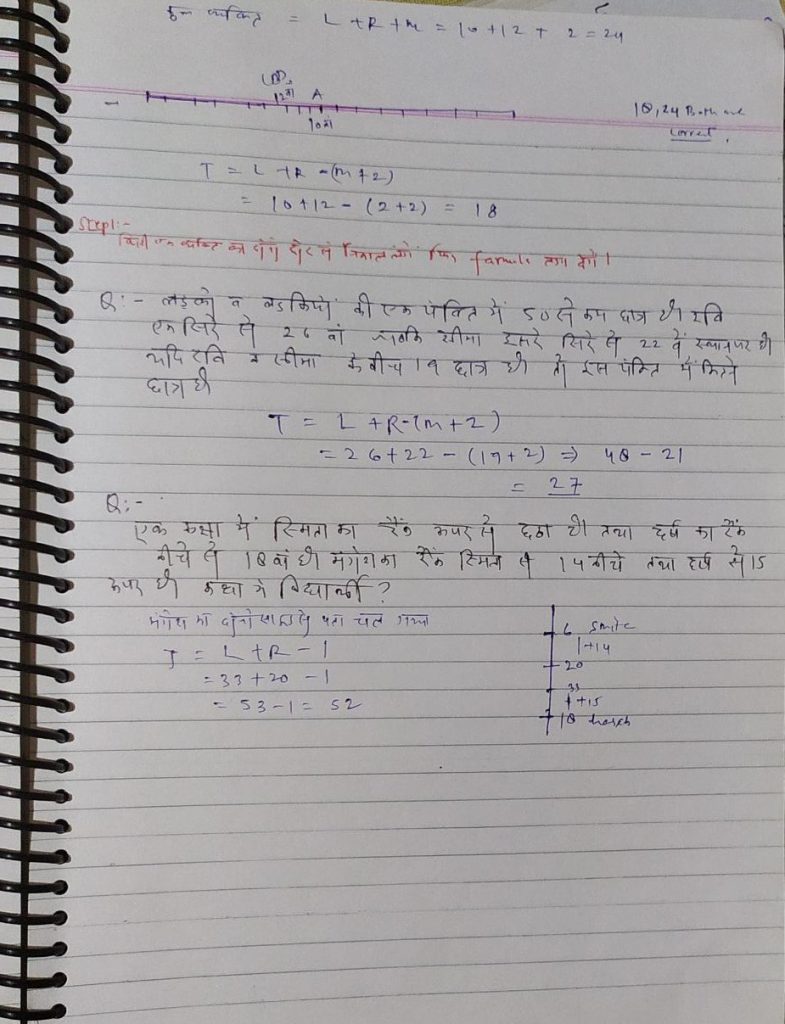 कुल व्यक्ति = L + R + m = 10 + 12 + 2 = 24
12वां A
10वां
18, 24 Both are
correct.
T = L + R - (m + 2)
= 10 + 12 - (2 + 2) = 18
Step1:-
किसी एक व्यक्ति का दोनों छोर से निकाल लेंगे फिर formula लगा देंगे।
Q:- लड़को व लड़कियों की एक पंक्ति में 50 से कम छात्र हैं। रवि
एक सिरे से 26 वां जबकि सीमा दूसरे सिरे से 22 वें स्थान पर है
यदि रवि व सीमा के बीच 19 छात्र हैं तो इस पंक्ति में कितने
छात्र हैं
T = L + R - (m + 2)
= 26 + 22 - (19 + 2) ⇒ 48 - 21
= 27
Q:-
एक कक्षा में स्मिता का रैंक ऊपर से छठा है तथा हर्ष का रैंक
नीचे से 18 वां है। मंगेश का रैंक स्मिता से 14 नीचे तथा हर्ष से 15
ऊपर है। कक्षा में विद्यार्थी?
मंगेश का दोनो साइड से पता चल गया
T = L + R - 1
= 33 + 20 - 1
= 53 - 1 = 52
6 Smita
+14
20
33
+15
18 harsh